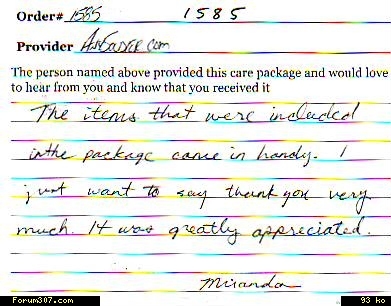 Order# 1585 1585
Provider
The person named above provided this care package and would love
to hear from you and know that you received it
The items that were included
in the package came in handy. I
just want to say thank you very
much. It was greatly appreciated.
Miranda
Forum307.com 93 ko